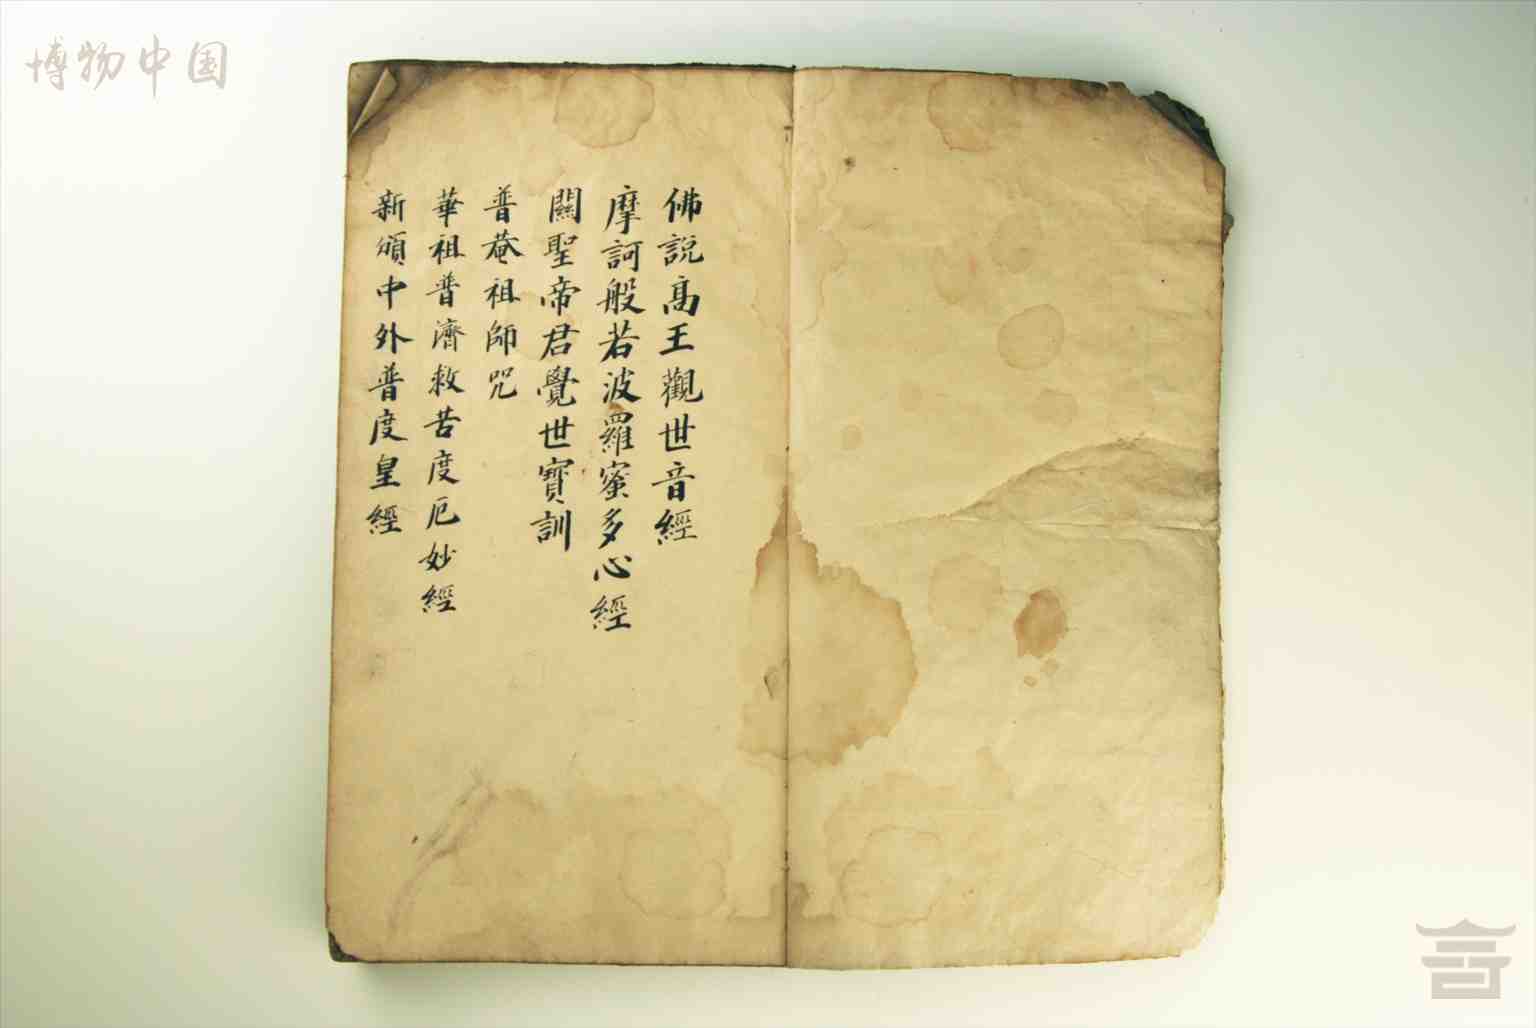 博物中国
佛說高王觀世音經
摩訶般若波羅蜜多心經
關聖帝君覺世寶訓
普菴祖師咒
華祖普濟救苦度厄妙經
新頒中外普度皇經